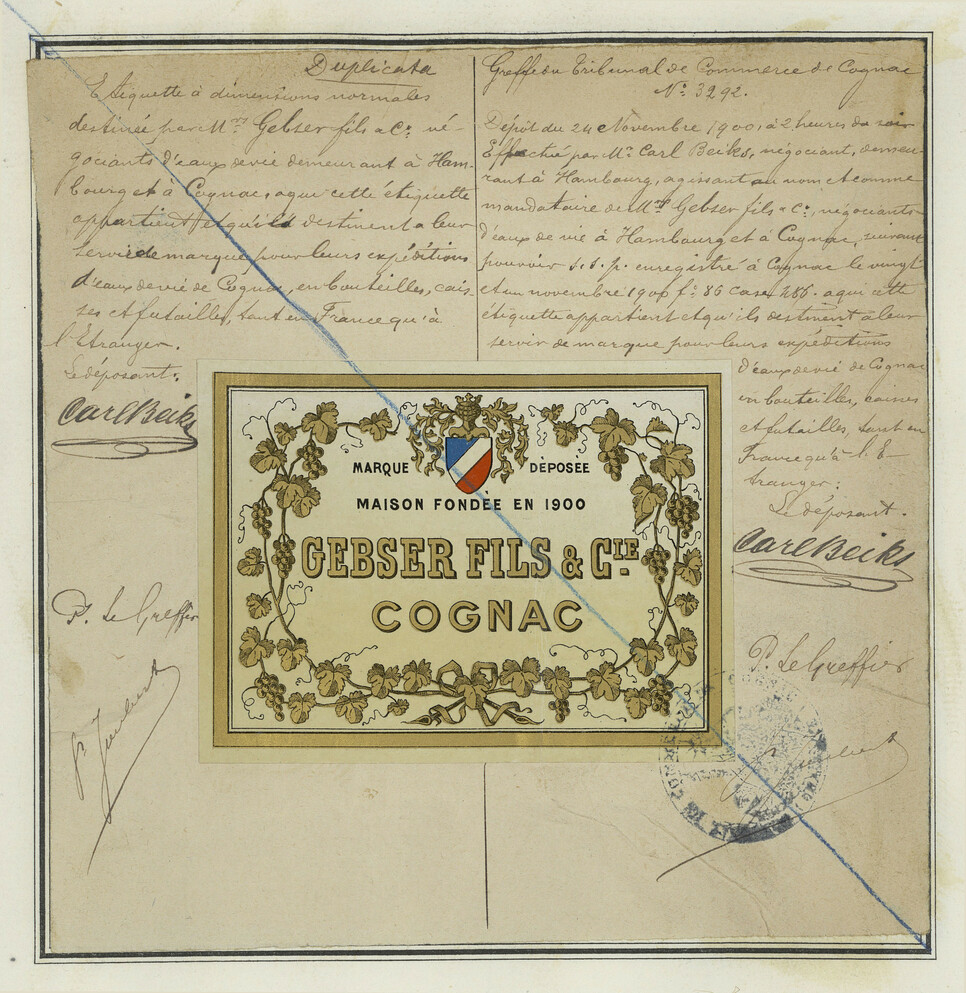 Duplicata
Etiquette à dimensions normales
destinée par M.rs Gebser fils & Cie. né-
gociants d'eaux de vie demeurant à Ham-
bourg et à Cognac, a qui cette étiquette
appartient et qu'ils destinent a leur
servir de marque pour leurs expéditions
d'eaux de vie de Cognac, en bouteilles, cais-
ses et futailles, tant en France qu'à
l'Etranger.
Le déposant:
Carl Beiks
P. Le Greffier
Greffe du Tribunal de Commerce de Cognac
No. 3292.
Dépôt du 24 Novembre 1900, à 2 heures du soir
Effectué par Mr. Carl Beiks, négociant, demeu-
rant à Hambourg, agissant au nom et comme
mandataire de M.rs Gebser fils & Cie, négociants
d'eaux de vie à Hambourg et à Cognac, suivant
pouvoir s.s.p. enregistré à Cognac le vingt
et un novembre 1900 fo. 86 case 286. a qui cette
étiquette appartient et qu'ils destinent à leur
servir de marque pour leurs expéditions
d'eaux de vie de Cognac
en bouteilles, caisses
et futailles, tant en
France qu'à l'E-
tranger:
Le déposant.
Carl Beiks
P. Le Greffier
MARQUE DÉPOSÉE
MAISON FONDÉE EN 1900
GEBSER FILS & CIE.
COGNAC